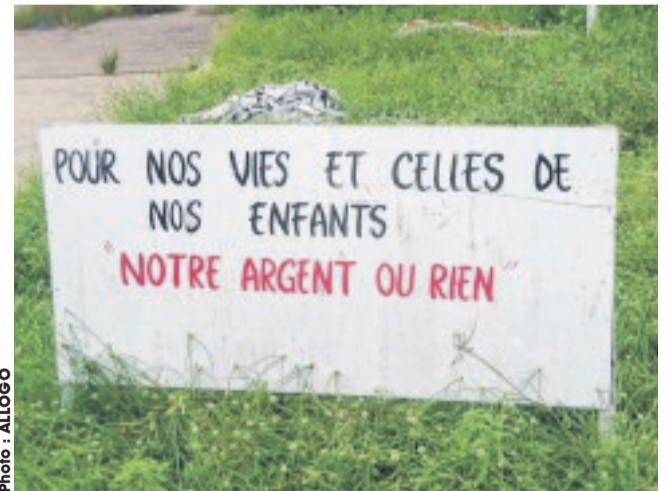 POUR NOS VIES ET CELLES DE
NOS ENFANTS
"NOTRE ARGENT OU RIEN"
Photo : ALLOGO